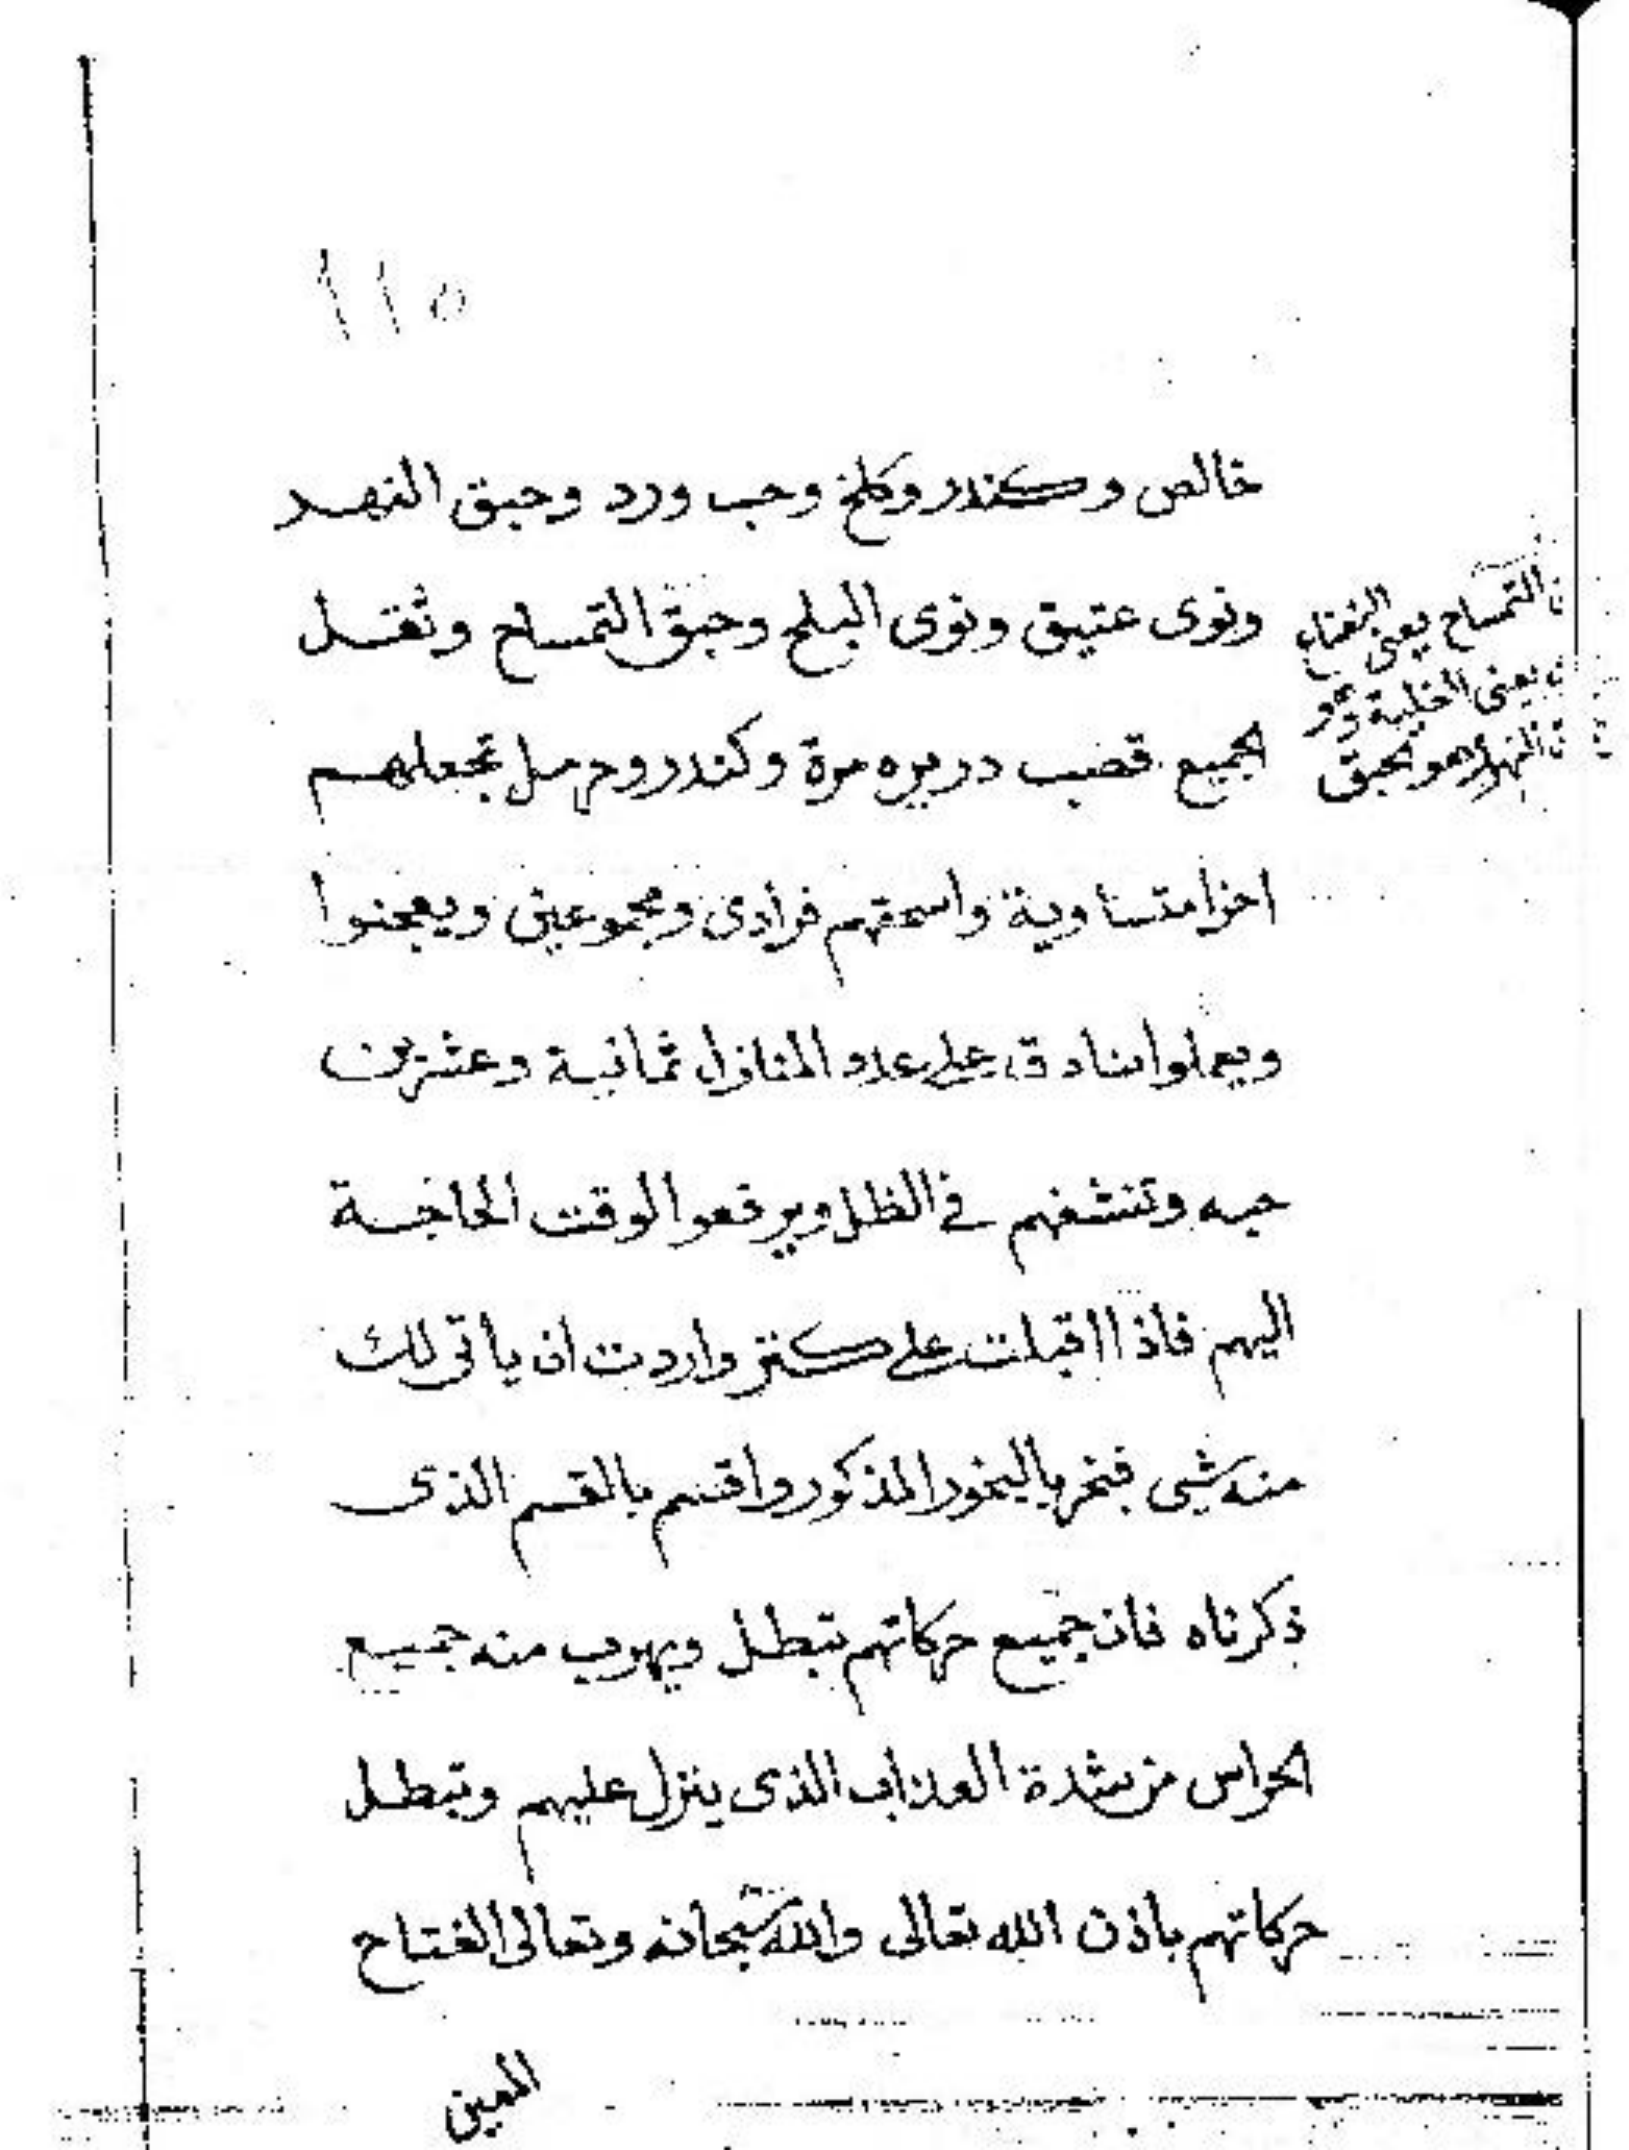 ١١٥
خالص وكندر وكلخ وحب ورد وحبق النهد
ونوى عتيق ونوى البلح وحبق التمساح وثقل
الجميع قصب دريره مرة وكندر وحرمل تجعلهم
اجزا متساوية واسحقهم فرادى ومجموعين ويعجنوا
ويعملوا بنادق على عدد المنازل ثمانية وعشرين
حبه وتنشفهم في الظل ويرفعوا لوقت الحاجة
اليهم فاذا اقبلت على كنز واردت ان ياتى لك
منه شى فبخر بالبخور المذكور واقسم بالقسم الذى
ذكرناه فان جميع حركاتهم تبطل ويهرب منه جميع
الحواس من شدة العذاب الذى ينزل عليهم وتبطل
حركاتهم باذن الله تعالى والله سبحانه وتعالى الفتاح
المعين
التمساح يعنى
يعنى
هو الحبق